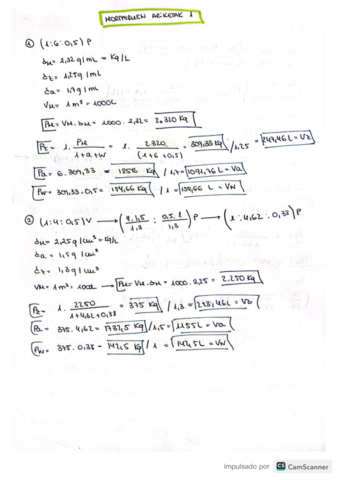 MORTEROEN ARIKETAK 1
① (1:6:0,5) P
δM = 2,32 g/mL = Kg/L
δz = 1,25g/mL
δa = 1,7g/mL
VM = 1m³ = 1000L
PM = VM. δM = 1000. 2,32 = 2.320 Kg
Pz = 1. PM / 1+a+w = 1. 2320 / (1+6+0,5) = 309,33 Kg / 1,25 = 247,46 L = Vz
Pa = 6. 309,33 = 1856 Kg / 1,7 = 1091,76 L = Va
Pw = 309,33.0,5 = 154,66 Kg / 1 = 154,66 L = Vw
② (1:4:0,5) V → (4.1,5 / 1,3 : 0,5.1 / 1,3) P → (1:4,62:0,38) P
δM = 2,25g/cm³ = Kg/L
δa = 1,5g/cm³
δz = 1,3g/cm³
VM = 1m³ = 1000L → PM = VM. δM = 1000. 2,25 = 2.250 Kg
Pz = 1. 2250 / 1+4,62+0,38 = 375 Kg / 1,3 = 288,46L = Vz
Pa = 375. 4,62 = 1732,5 Kg / 1,5 = 1155L = Va
Pw = 375. 0,38 = 142,5 Kg / 1 = 142,5 L = Vw
impulsado por CS CamScanner